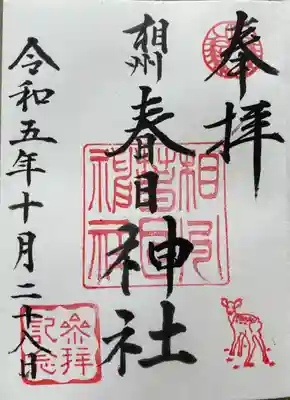 奉拝
相州
春日神社
令和五年十月二十八日
相州春日神社
参拝記念